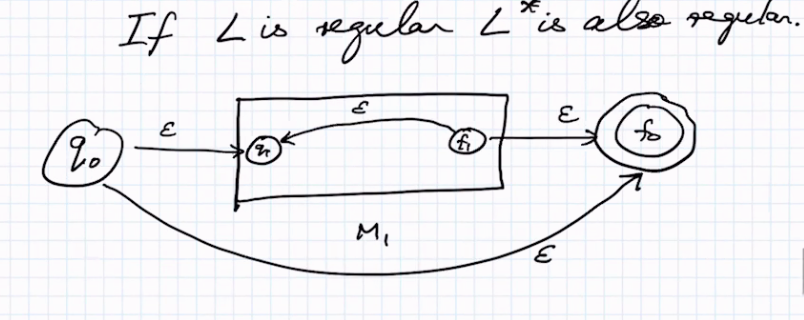 If L is regular L* is also regular.
ε
ε
q₀
ε
q₁
f₁
f₀
M₁
ε